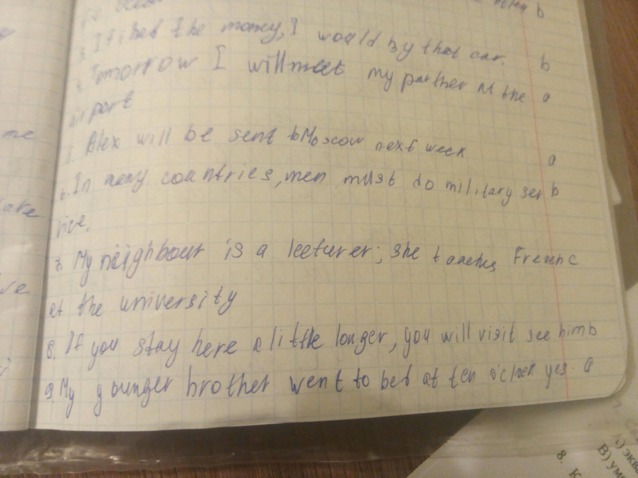 3. If i had the money, I would by that car. b
4. Tomorrow I will meet my parther at the a
airport
5. Alex will be sent to Moscow next week a
6. In many countries, men must do military ser b
vice.
7. My neighbour is a lecturer; she teaches French c
at the university
8. If you stay here a little longer, you will visit see him b
9. My younger brother went to bet at ten o'clock yes. a
8.